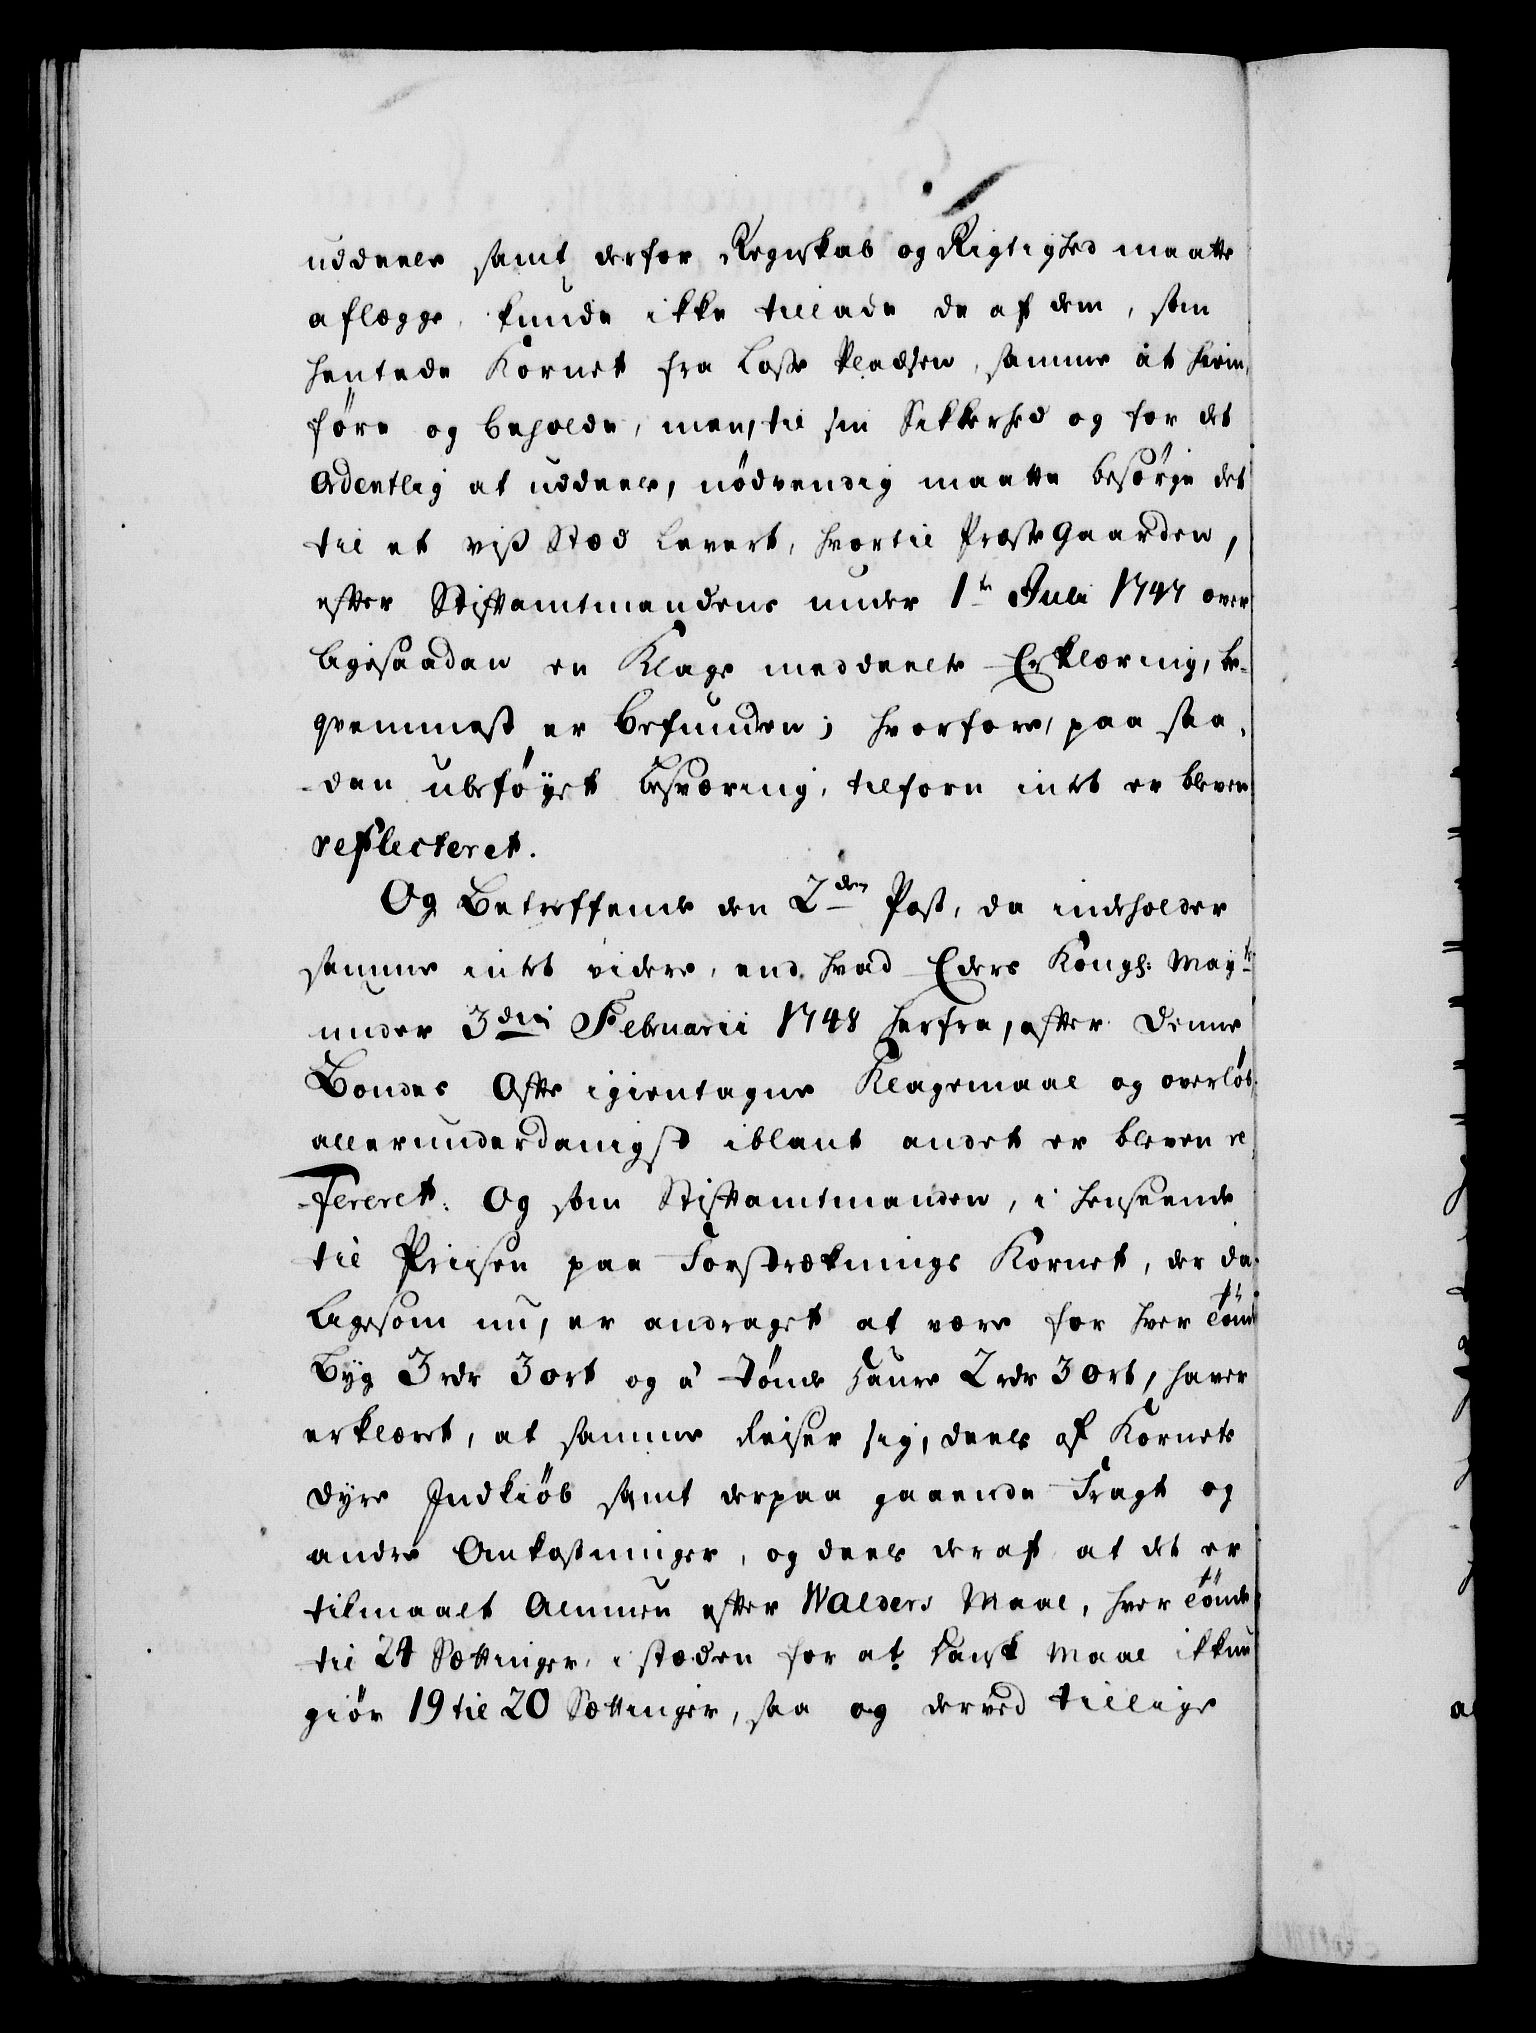 uddeele samt derfor Regnskab og Rigtighed maatte
aflægge, kunde ikke tillade de af dem, som
hentede Kornet fra Losse Pladsen, samme at hiem,
føre og beholde, men, til sin Sikkerhed og for det
Ordentlig at uddeele, nødvendig maatte besørge det
til et viß Stæd levert, hvortil Præste Gaarden,
efter Stiftamtmandens under 1te Juli 1747 over
ligesaadan en Klage meddeelte Erklæring, be-
qvemmest er befunden; hvorfore, paa saa,
dan ubeføyet besværing, tilforn intet er bleven
reflecteret.
Og Betreffende den 2den Post, da indeholder
samme intet videre, end hvad Eders Kongl: Mayts
under 3die Februarii 1748 herfra, efter denne
Bondes Ofte igientagne Klagemaal og overløb,
allerunderdanigst iblant andet er bleven re,
fereret. Og som Stiftamtmanden, i henseende
til Priisen paa Forstræknings Kornet, der da,
ligesom nu, er andraget at være for hver Tønde
Byg 3 rdr 3 ort og à Tønde Haure 2 rdr 3 ort, haver
erklæret, at samme Reiser sig, deels af Kornets
dyre Indkiøb samt derpaa gaaende Fragt og
andre Omkostninger, og deels deraf at det er
tilmaalt Almuen efter Walders Maal, hver Tønde
til 24 Sættinger, i stæden for at Dansk Maal ikkun
giør 19 til 20 Sættinger, saa og derved tillige